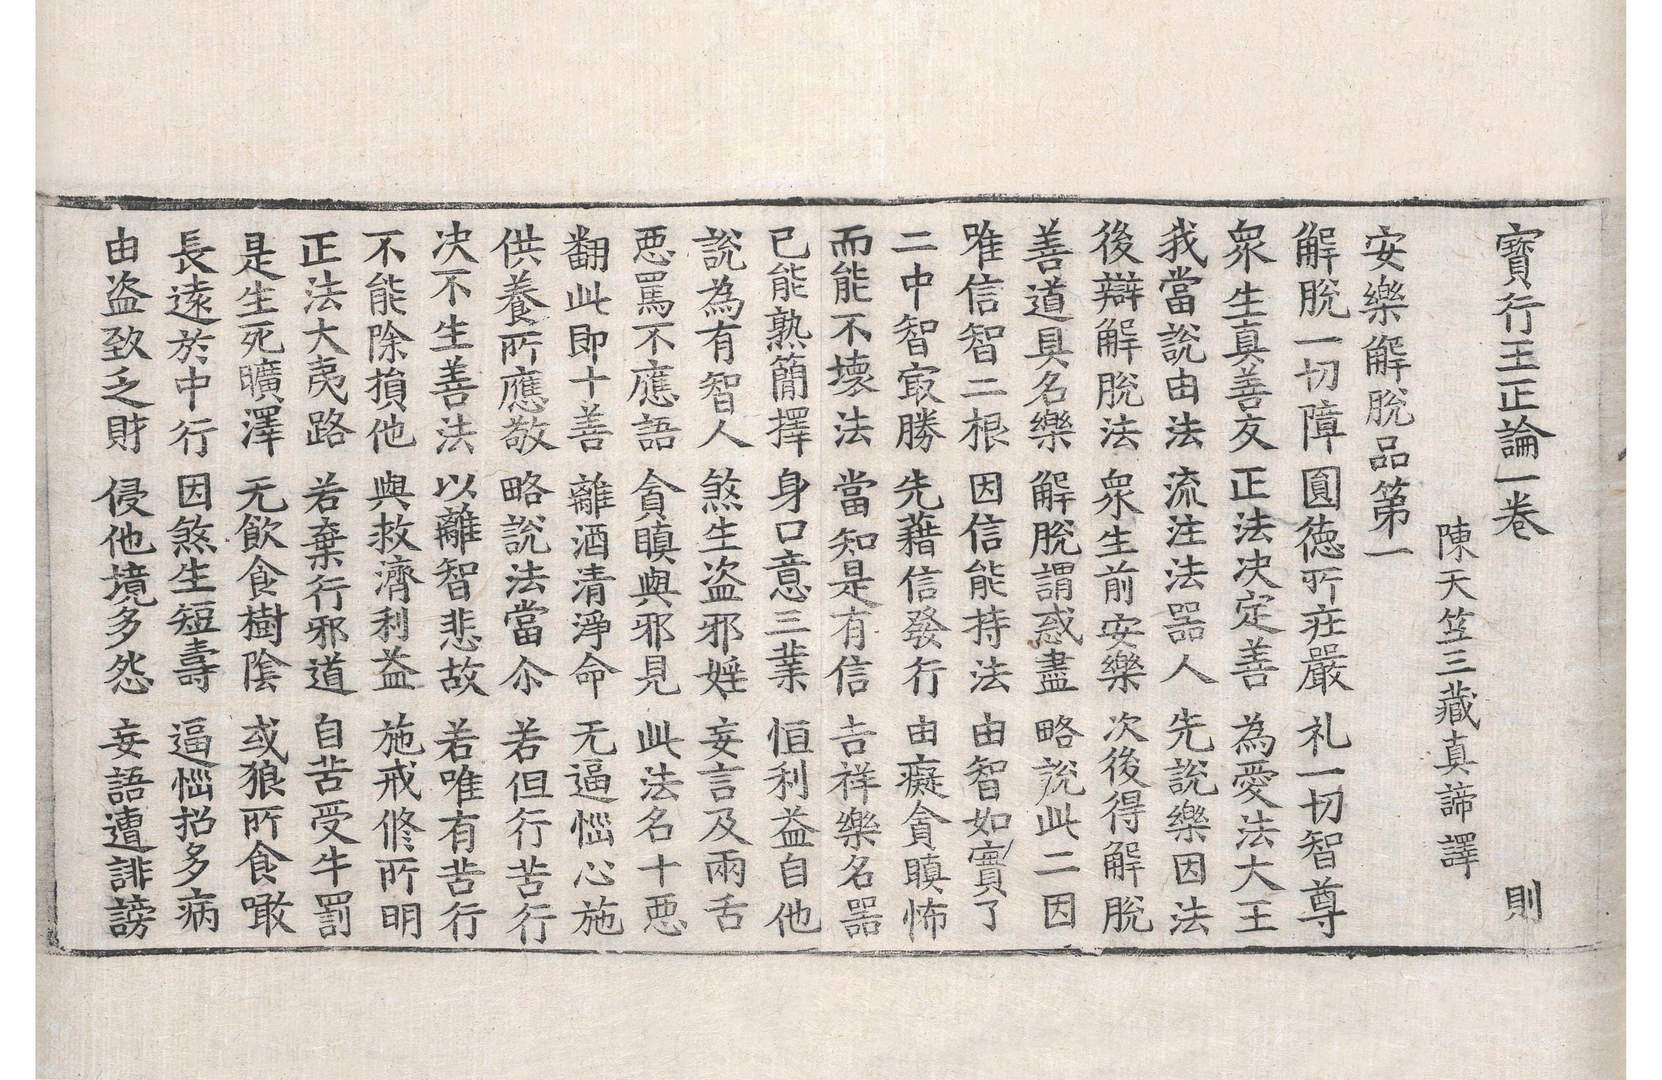 寶行王正論一卷 則
陳天竺三藏真諦譯
安樂解脫品第一
解脫一切障 圓德所莊嚴 礼一切智尊
衆生真善友 正法決定善 為愛法大王
我當說由法 流注法器人 先說樂因法
後辯解脫法 衆生前安樂 次後得解脫
善道具名樂 解脫謂惑盡 略說此二因
唯信智二根 因信能持法 由智如實了
二中智㝡勝 先藉信發行 由癡貪瞋怖
而能不壞法 當知是有信 吉祥樂名器
已能熟簡擇 身口意三業 恒利益自他
說為有智人 煞生盜邪婬 妄言及兩舌
惡罵不應語 貪瞋與邪見 此法名十惡
翻此即十善 離酒清淨命 无逼惱心施
供養所應敬 略說法當尒 若但行苦行
决不生善法 以離智悲故 若唯有苦行
不能除損他 與救濟利益 施戒修所明
正法大夷路 若棄行邪道 自苦受牛罰
是生死曠澤 无飲食樹陰 或狼所食噉
長遠於中行 因煞生短壽 逼惱招多病
由盜致乏財 侵他境多怨 妄語遭誹謗